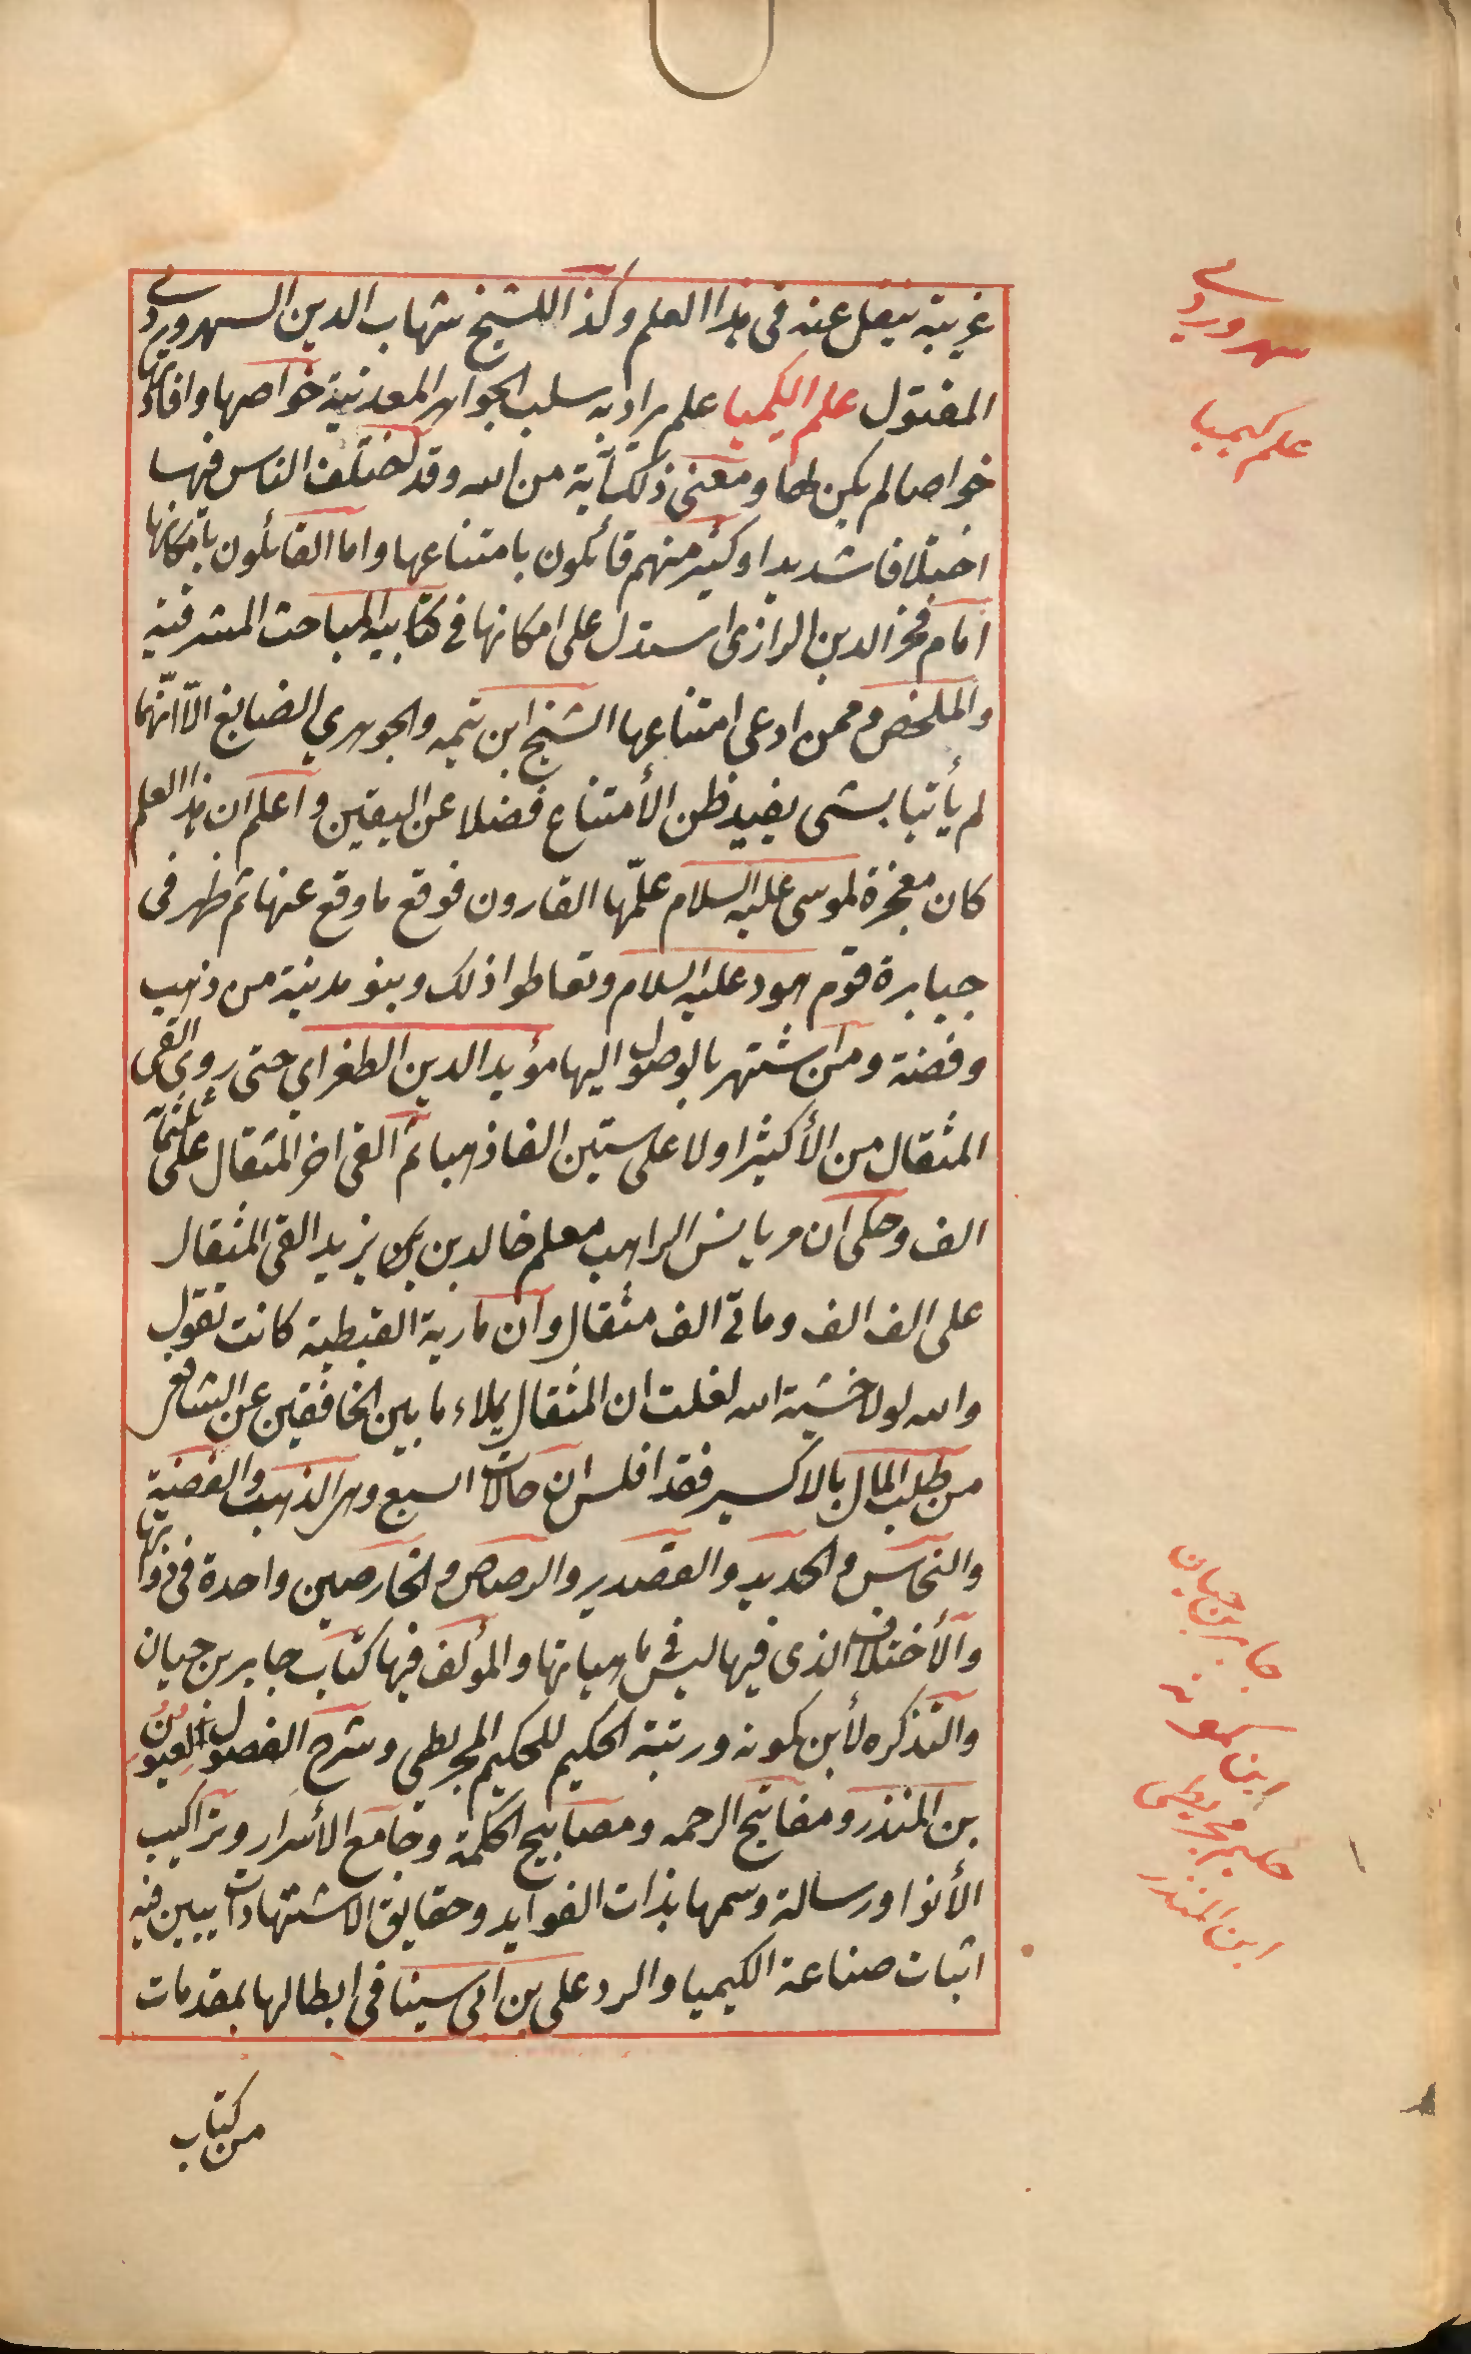 غريبة ينقل عنه فى هذا العلم وكذا للشيخ شهاب الدين السهروردى
المقتول علم الكيميا علم يراد به سلب الجواهر المعدنية خواصها وافادتها
خواصا لم يكن لها ومعنى ذلك آية من الله وقد اختلف الناس فيها
اختلافا شديدا وكثير منهم قائلون بامتناعها واما القائلون بامكانها
امام فخر الدين الرازى استدل على امكانها فى كتابيه المباحث المشرقية
والملخص وممن ادعى امتناعها الشيخ ابن تيميه والجوهري الصايغ الاّ انّهما
لم يأتيا بشى يفيد ظن الأمتناع فضلا عن اليقين واعلم ان هذا العلم
كان معجزة لموسى عليه السلام علّمها القارون فوقع ما وقع عنها ثم ظهر فى
جبابرة قوم هود عليه السلام وتعاطوا ذلك وبنو مدينة من ذهب
وفضة ومن اشتهر بالوصول اليها مؤيد الدين الطغراي حتى روى القى
المثقال من الأكثير اولا على ستين الفا ذهبا ثم القى اخر المثقال على ثلثمائة
الف وحكى ان مريانس الراهب معلم خالد بن يزيد القى المثقال
على الف الف ومأتى الف مثقال وان مارية القبطية كانت تقول
والله لولا خشية الله لقلت ان المثقال يملاء ما بين الخافقين عن الشافعى
من طلب المال بالاكسير فقد افلس ان حالات السبع وهى الذهب والفضة
والنحاس والحديد والقصدير والرصاص والخارصين واحدة فى ذواتها
والأختلاف الذى فيها ليس فى ماهياتها والمؤلف فيها كتاب جابر بن حيان
والتذكره لأبن كمونه ورتبة الحكيم للحكيم المجريطى وشرح الفصول لعيون
بن المنذر ومفاتيح الرحمه ومصابيح الحكمة وجامع الأسرار وتراكيب
الأنوار ورسالة وسمها بذات الفوايد وحقايق الاستشهادات يبين فيه
اثبات صناعة الكيميا والرد على بن ابى سينا فى ابطالها بمقدمات
من كتاب
سهروردى
علم كيميا
جابر بن حيان
ابن كمونه
حكيم مجريطى
ابن المنذر